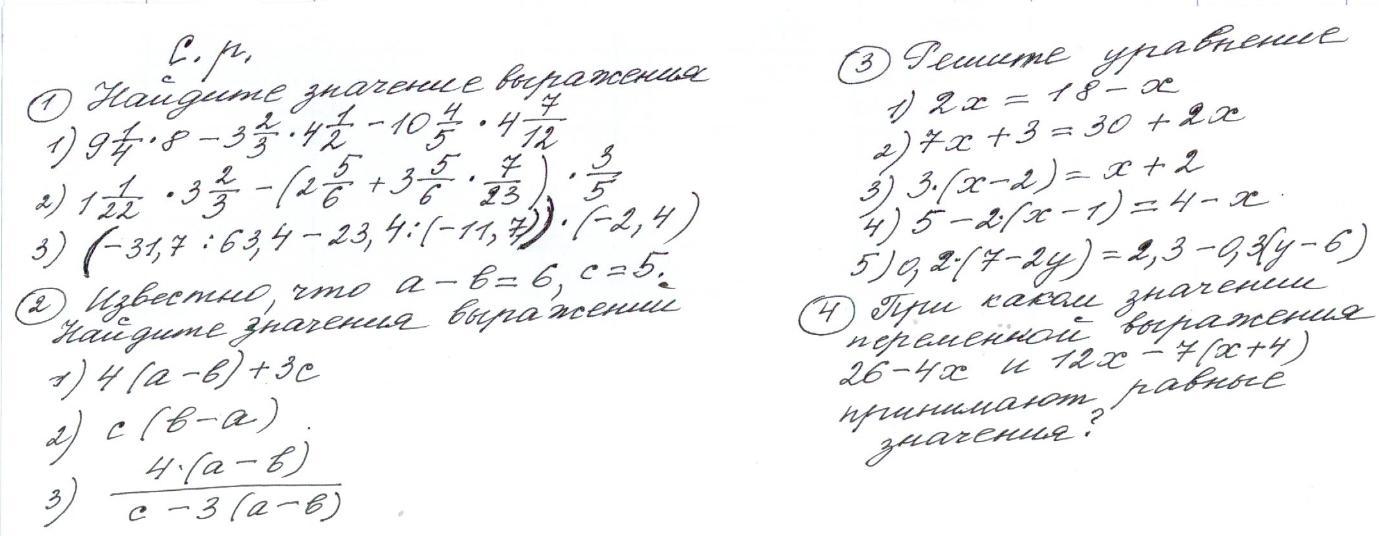 С. р.
① Найдите значение выражения
1) 9 1/4 · 8 − 3 2/3 · 4 1/2 − 10 4/5 · 4 7/12
2) 1 1/22 · 3 2/3 − (2 5/6 + 3 5/6 · 7/23) · 3/5
3) (−31,7 : 63,4 − 23,4 : (−11,7)) · (−2,4)
② Известно, что a − b = 6, c = 5.
Найдите значения выражений
1) 4 (a − b) + 3c
2) c (b − a)
3) 4·(a − b) / c − 3 (a − b)
③ Решите уравнение
1) 2x = 18 − x
2) 7x + 3 = 30 + 2x
3) 3·(x − 2) = x + 2
4) 5 − 2·(x − 1) = 4 − x
5) 0,2·(7 − 2y) = 2,3 − 0,3(y − 6)
④ При каком значении
переменной выражения
26 − 4x и 12x − 7(x + 4)
принимают равные
значения?